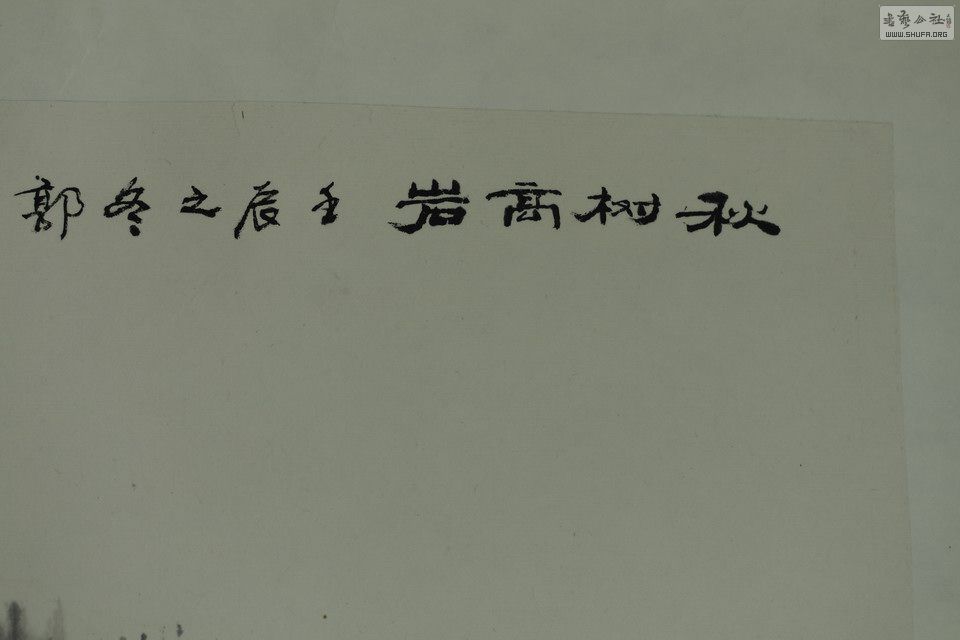 秋树高岩 壬辰之冬 郭
书艺公社
WWW.SHUFA.ORG